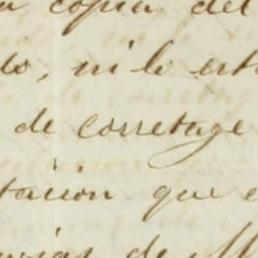 copia del
do, ni lo est
de corretage
tacion que
de